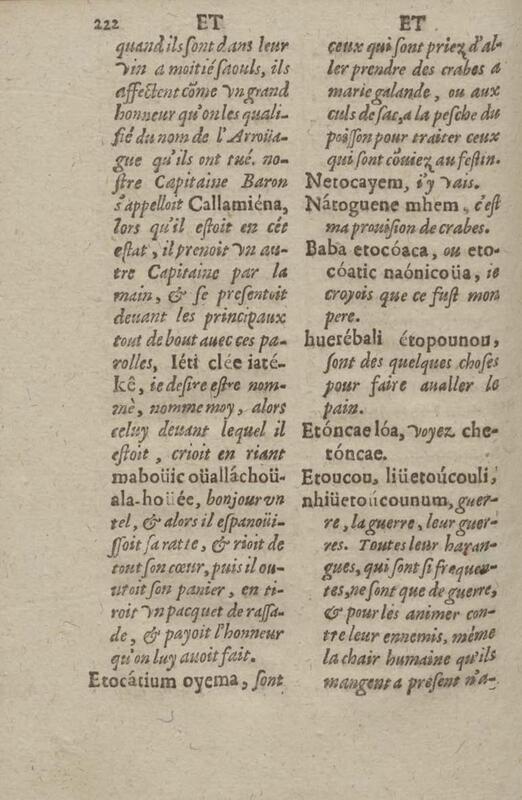 222 ET ET
quand ils sont dans leur
vin a moitié saouls, ils
affectent cõme vn grand
honneur qu'on les quali-
fié du nom de l'Arroüa-
gue qu'ils ont tué. no-
stre Capitaine Baron
s'appelloit Callamiéna,
lors qu'il estoit en cét
estat, il prenoit vn au-
tre Capitaine par la
main, & se presentoit
deuant les principaux
tout de bout auec ces pa-
rolles, Iéti clée iaté-
kê, ie desire estre nom-
mè, nomme moy, alors
celuy deuant lequel il
estoit, crioit en riant
maboüic oüallâchoü-
ala-hoüée, bonjour vn
tel, & alors il espanoüi-
ssoit sa ratte, & rioit de
tout son cœur, puis il ou-
uroit son panier, en ti-
roit vn pacquet de rassa-
de, & payoit l'honneur
qu'on luy auoit fait.
Etocátium oyema, sont
ceux qui sont priez d'al-
ler prendre des crabes a
marie galande, ou aux
culs de sac, a la pesche du
poisson pour traiter ceux
qui sont cõuiez au festin.
Netocayem, i'y vais.
Nátoguene mhem, c'est
ma prouision de crabes.
Baba etocóaca, ou eto-
cóatic naónicoüa, ie
croyois que ce fust mon
pere.
huerébali étopounou,
sont des quelques choses
pour faire aualler le
pain.
Etóncae lóa, voyez che-
tóncae.
Etoucou, liüetoúcouli,
nhiüetoúcounum, guer-
re, la guerre, leur guer-
res. Toutes leur haran-
gues, qui sont si frequen-
tes, ne sont que de guerre,
& pour les animer con-
tre leur ennemis, méme
la chair humaine qu'ils
mangent a present n'a-